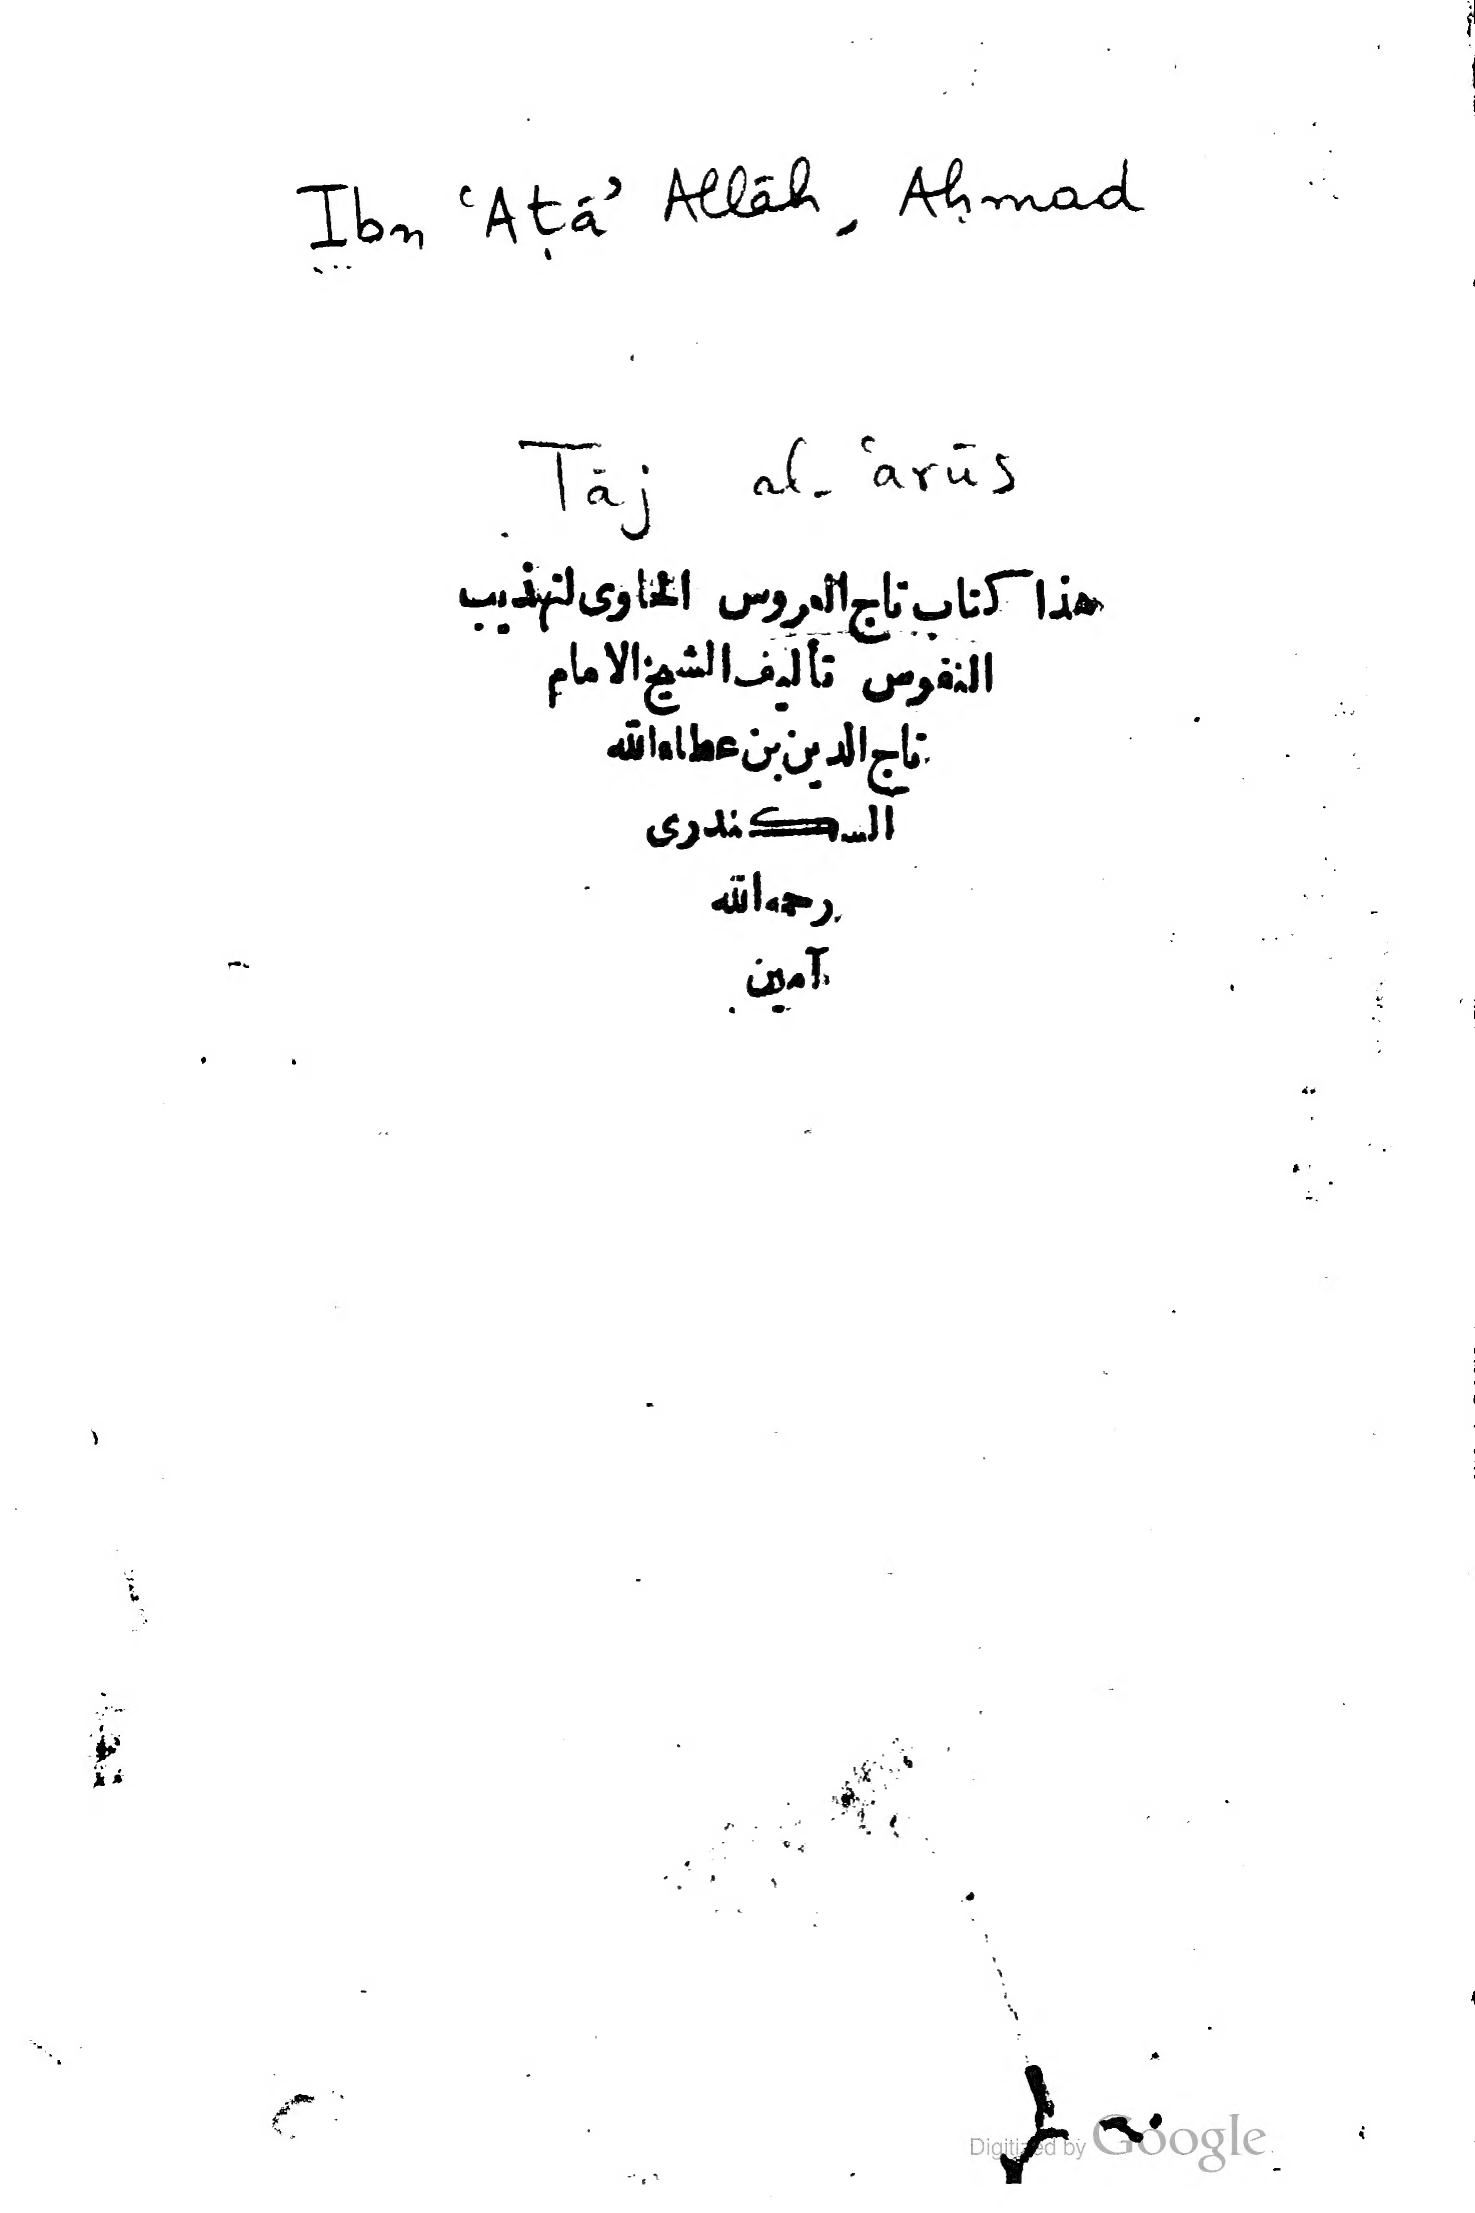 Ibn ʿAṭāʾ Allāh, Aḥmad
Tāj al-ʿarūs
هذا كتاب تاج العروس الحاوى لتهذيب
النفوس تأليف الشيخ الامام
تاج الدين بن عطاء الله
السكندرى
رحمه الله
آمين
Digitized by Google